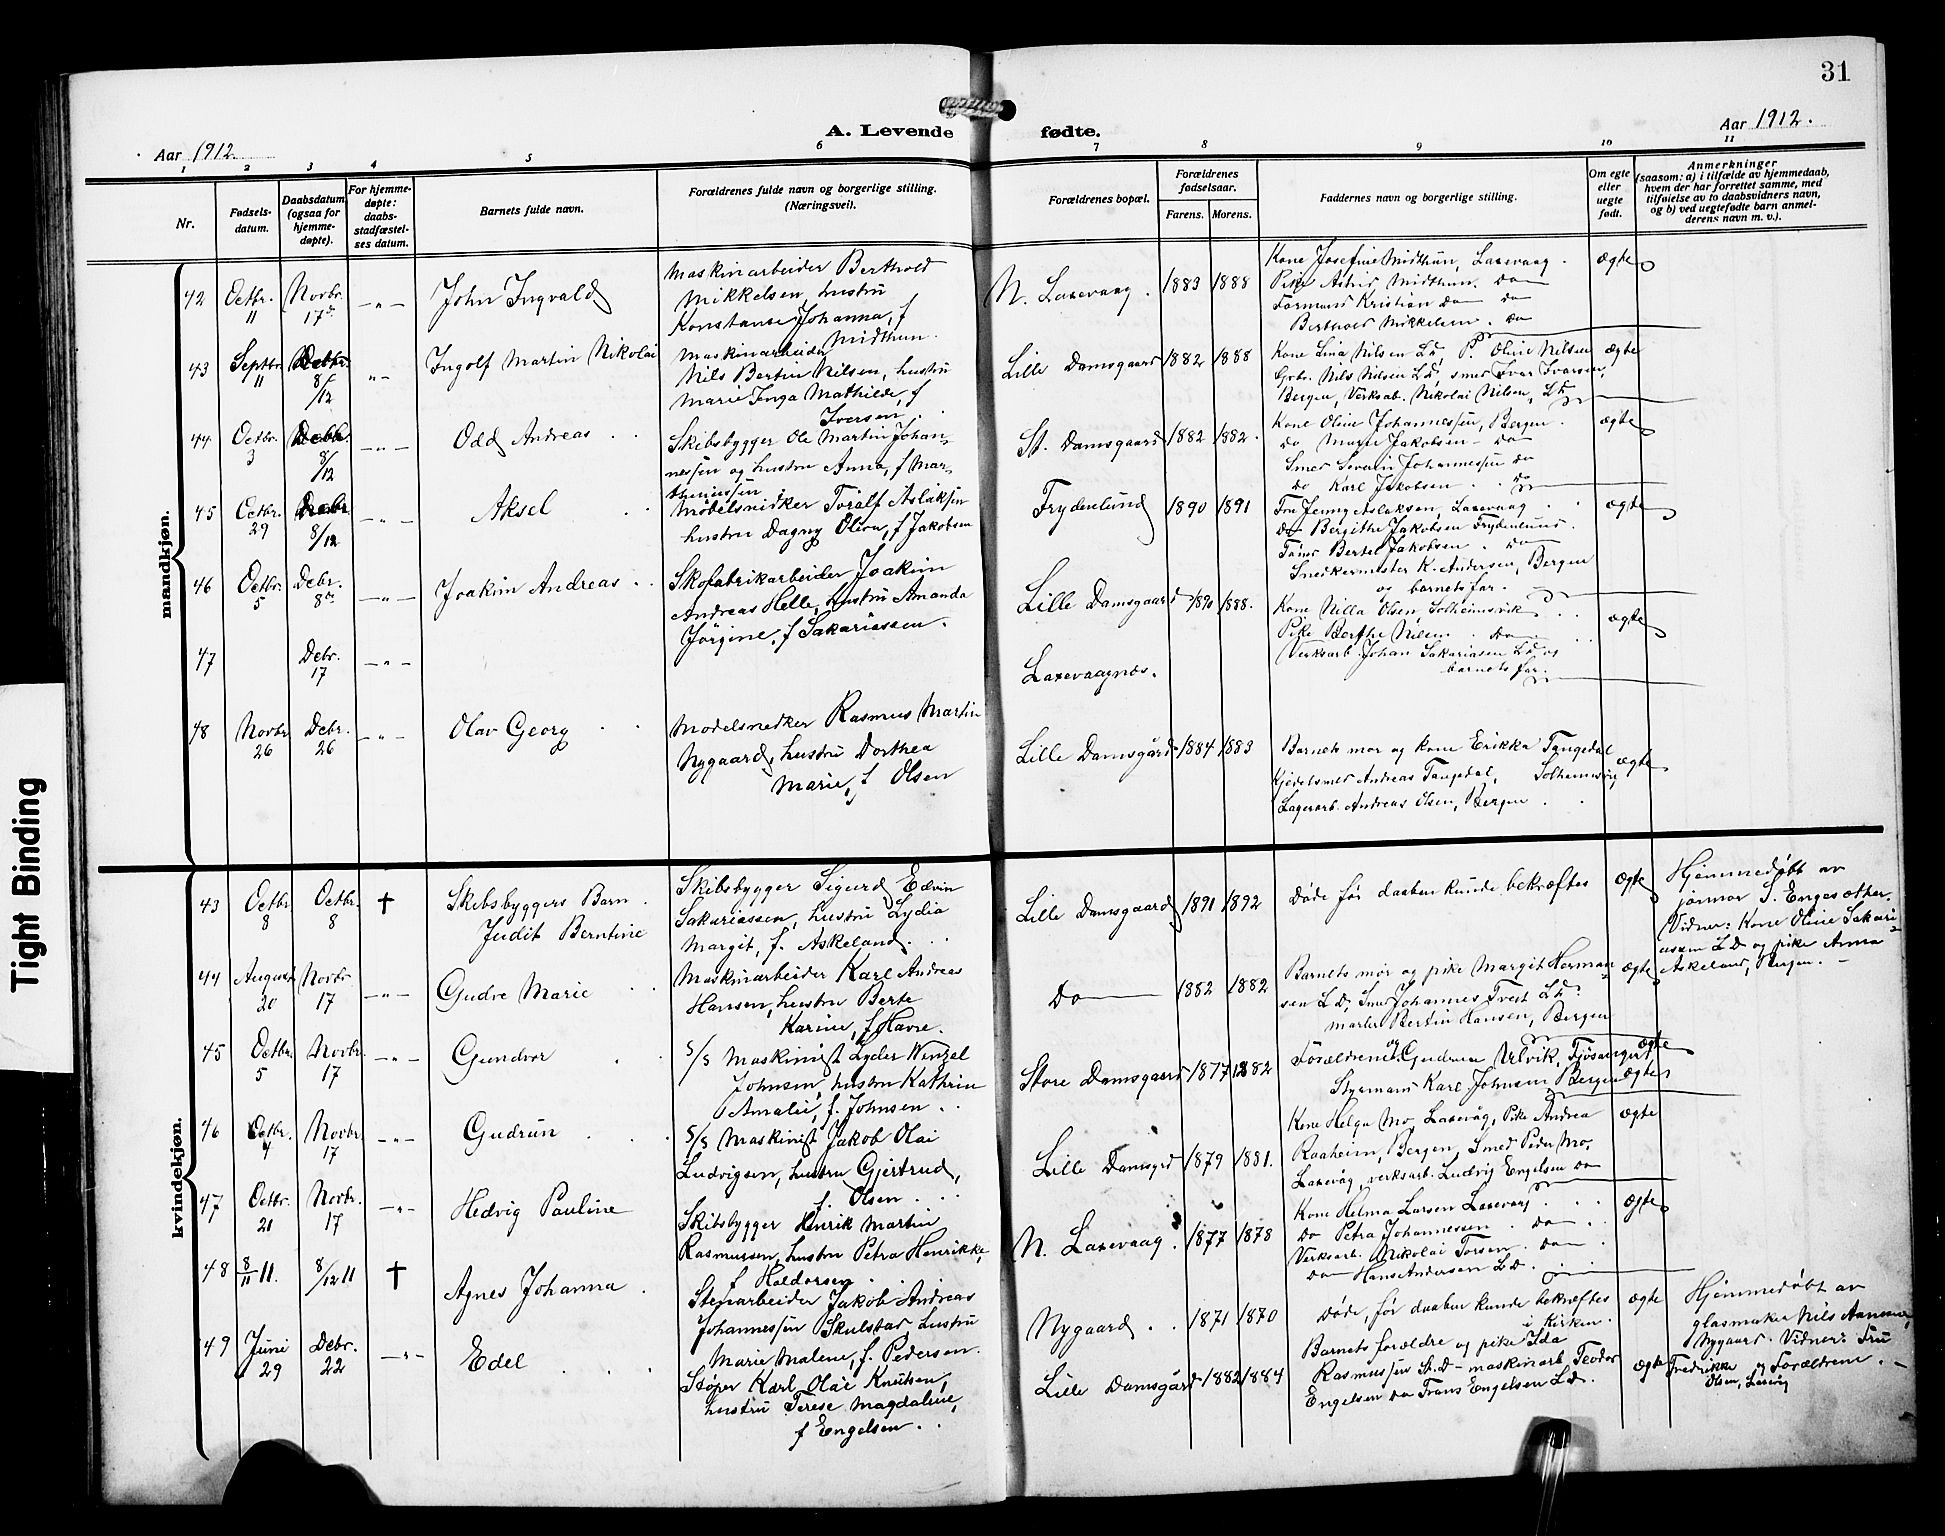 31
A. Levende fødte.
Aar 1912.
Aar 1912.
1 2 3 4 5 6 7 8 9 10 11
Nr.
Fødsels-
datum.
Daabsdatum
(ogsaa for
hjemme-
døpte).
For hjemme-
døpte:
daabs-
stadfæstel-
ses datum.
Barnets fulde navn.
Forældrenes fulde navn og borgerlige stilling.
(Næringsvei).
Forældrenes bopæl.
Forældrenes
fødselsaar.
Farens. Morens.
Faddernes navn og borgerlige stilling.
Om egte
eller
uegte
født.
Anmerkninger
(saasom: a) i tilfælde av hjemmedaab,
hvem der har forrettet samme, med
tilføielse av to daabsvidners navn,
og b) ved uegtefødte barn anmel-
derens navn m. v.).
mandkjøn.
42 Octbr. 11 Novbr. 17de -"- John Ingvald
Maskinarbeider Berthold
Mikkelsen, hustru
Konstanse Johanna, f
Midthun.
N. Laxevaag. 1883 1888
Kone Josefine Midthun, Laxevaag.
Pike Astrid Midthun. Do
Formand Kristian do do
Berthold Mikkelsen. do
ægte
43 Septbr. 11 Debr. 8/12 "- Ingolf Martin Nikolai
Maskinarbeider
Nils Bertin Nilsen, hustru
Marie Inga Mathilde, f
Iversen.
Lille Damsgaard 1882 1888
Kone Lina Nilsen L.D., P. Oline Nilsen
Grbr. Nils Nilsen L.D., smed Ivar Ivarsen,
Bergen, Verksab. Nikolai Nilsen, L.D.
ægte
44 Octbr. 3 Debr. 8/12 -"- Odd Andreas
Skibsbygger Ole Martin Johan-
nessen og hustru Anna, f Mar-
thiniussen.
St. Damsgaard 1882 1882.
Kone Oline Johannessen, Bergen.
do Marie Jakobsen - do
Smed Severin Johannessen do
Do Karl Jakobsen do
ægte
45 Octbr. 29 Debr. 8/12 -"- Aksel
Møbelsnidker Toralf Aslaksen
hustru Dagny Oliva, f Jakobsen
Frydenlund 1890 1891
Fru Jenny Aslaksen, Laxevaag
Do Bergithe Jakobsen Frydenlund.
Bertel Jakobsen. do
Snedkermester K. Andersen, Bergen
og barnets far.
ægte
46 Octbr. 5 Debr. 8de -"- Joakim Andreas
Skofabrikarbeider Joakim
Andreas Helle, hustru Amanda
Jørgine, f Sakariassen.
Lille Damsgaard 1890 1888.
Kone Nilla Olsen, Solheimsvik
Pike Berthe Nilsen. Do
Verksarb. Johan Sakariasen L.D. og
barnets far.
ægte
47 Debr. 17 -"-
Laxevaagnes.
48 Novbr. 26 Debr. 26 -"- Olav Georg
Modelsnedker Rasmus Martin
Nygaard, hustru Dorthea
Marie, f Olsen
Lille Damsgård 1884 1883
Barnets mor og kone Erikka Tangedal
Kjedelsmed Andreas Tangedal, Solheimsvig,
Lagerarb. Andreas Olsen, Bergen.
ægte
kvindekjøn.
43 Octbr. 8 Octbr. 8 † Skibsbyggers Barn.
Judit Berntine
Skibsbygger Sigurd Edvin
Sakariassen, hustru Lydia
Margit, f. Askeland.
Lille Damsgaard 1891 1892
Døde før daaben kunde bekræftes
ægte
Hjemmedøbt av
jormor S. Engesæther.
Vidner: Kone Oline Sakari-
assen L.D. og pike Anna
Askeland, Bergen. -
44 August 20 Novbr 17 -"- Gudve Marie
Maskinarbeider Karl Andreas
Hansen, hustru Berte
Karine, f Havre.
Do 1882 1882
Barnets mor og pike Margit Herman-
sen L.D., Smed Johannes Tveit L.D.
marter Bertin Hansen, Bergen
ægte
45 Octbr. 5 Novbr. 17 -"- Gundvor
S/S Maskinist Lyder Wenzel
Johnsen, hustru Kathrine
Amalie, f. Johnsen.
Store Damsgaard 1877 1882
Forældrene og Gudrun Ulvik, Fjøsanger
Styrmand Karl Johnsen Bergen
ægte
ægte
46 Octbr. 4 Novbr. 17 -"- Gudrun
S/S Maskinist Jakob Olai
Ludvigsen, hustru Gjertrud,
f. Olsen.
Lille Damsgrd 1879 1881.
Kone Helga Mo Laxevåg, Pike Andrea
Raaheim, Bergen, Smed Peder Mo,
Laxevåg, verksarb. Ludvig Engelsen do
ægte
47 Octbr. 21 Novbr. 17 -"- Hedvig Pauline
Skibsbygger Henrik Martin
Rasmussen, hustru Petra Henrikke,
f Haldorsen.
N. Laxevaag. 1877 1878
Kone Helma Larsen Laxevaag
Do Petra Johannessen do
Verksarb. Nikolai Torsen. do
do Hans Andersen L.D.
ægte
48 8/11 11. 8/12 11 † Agnes Johanna.
Stenarbeider Jakob Andreas
Johannessen Skulstad hustru
Marie Malene, f. Pedersen.
Nygaard. 1871 1870
Døde, før daaben kunde bekræftes
i Kirken.
ægte
Hjemmedøbt av
glasmaker Nils
Nygaard. Vidner: Fru
Fredrikke Olsen, Laxevåg og Forældrene. -
49 Juni 29 Debr. 22 -"- Edel
Støper Karl Olai Knutsen,
hustru Terese Magdalene,
f Engelsen.
Lille Damsgård 1882 1884
Barnets forældre og pike Ida
Rasmussen St.D - maskinarb. Teodor
Engelsen do Frans Engelsen L.D.
ægte
Tight Binding